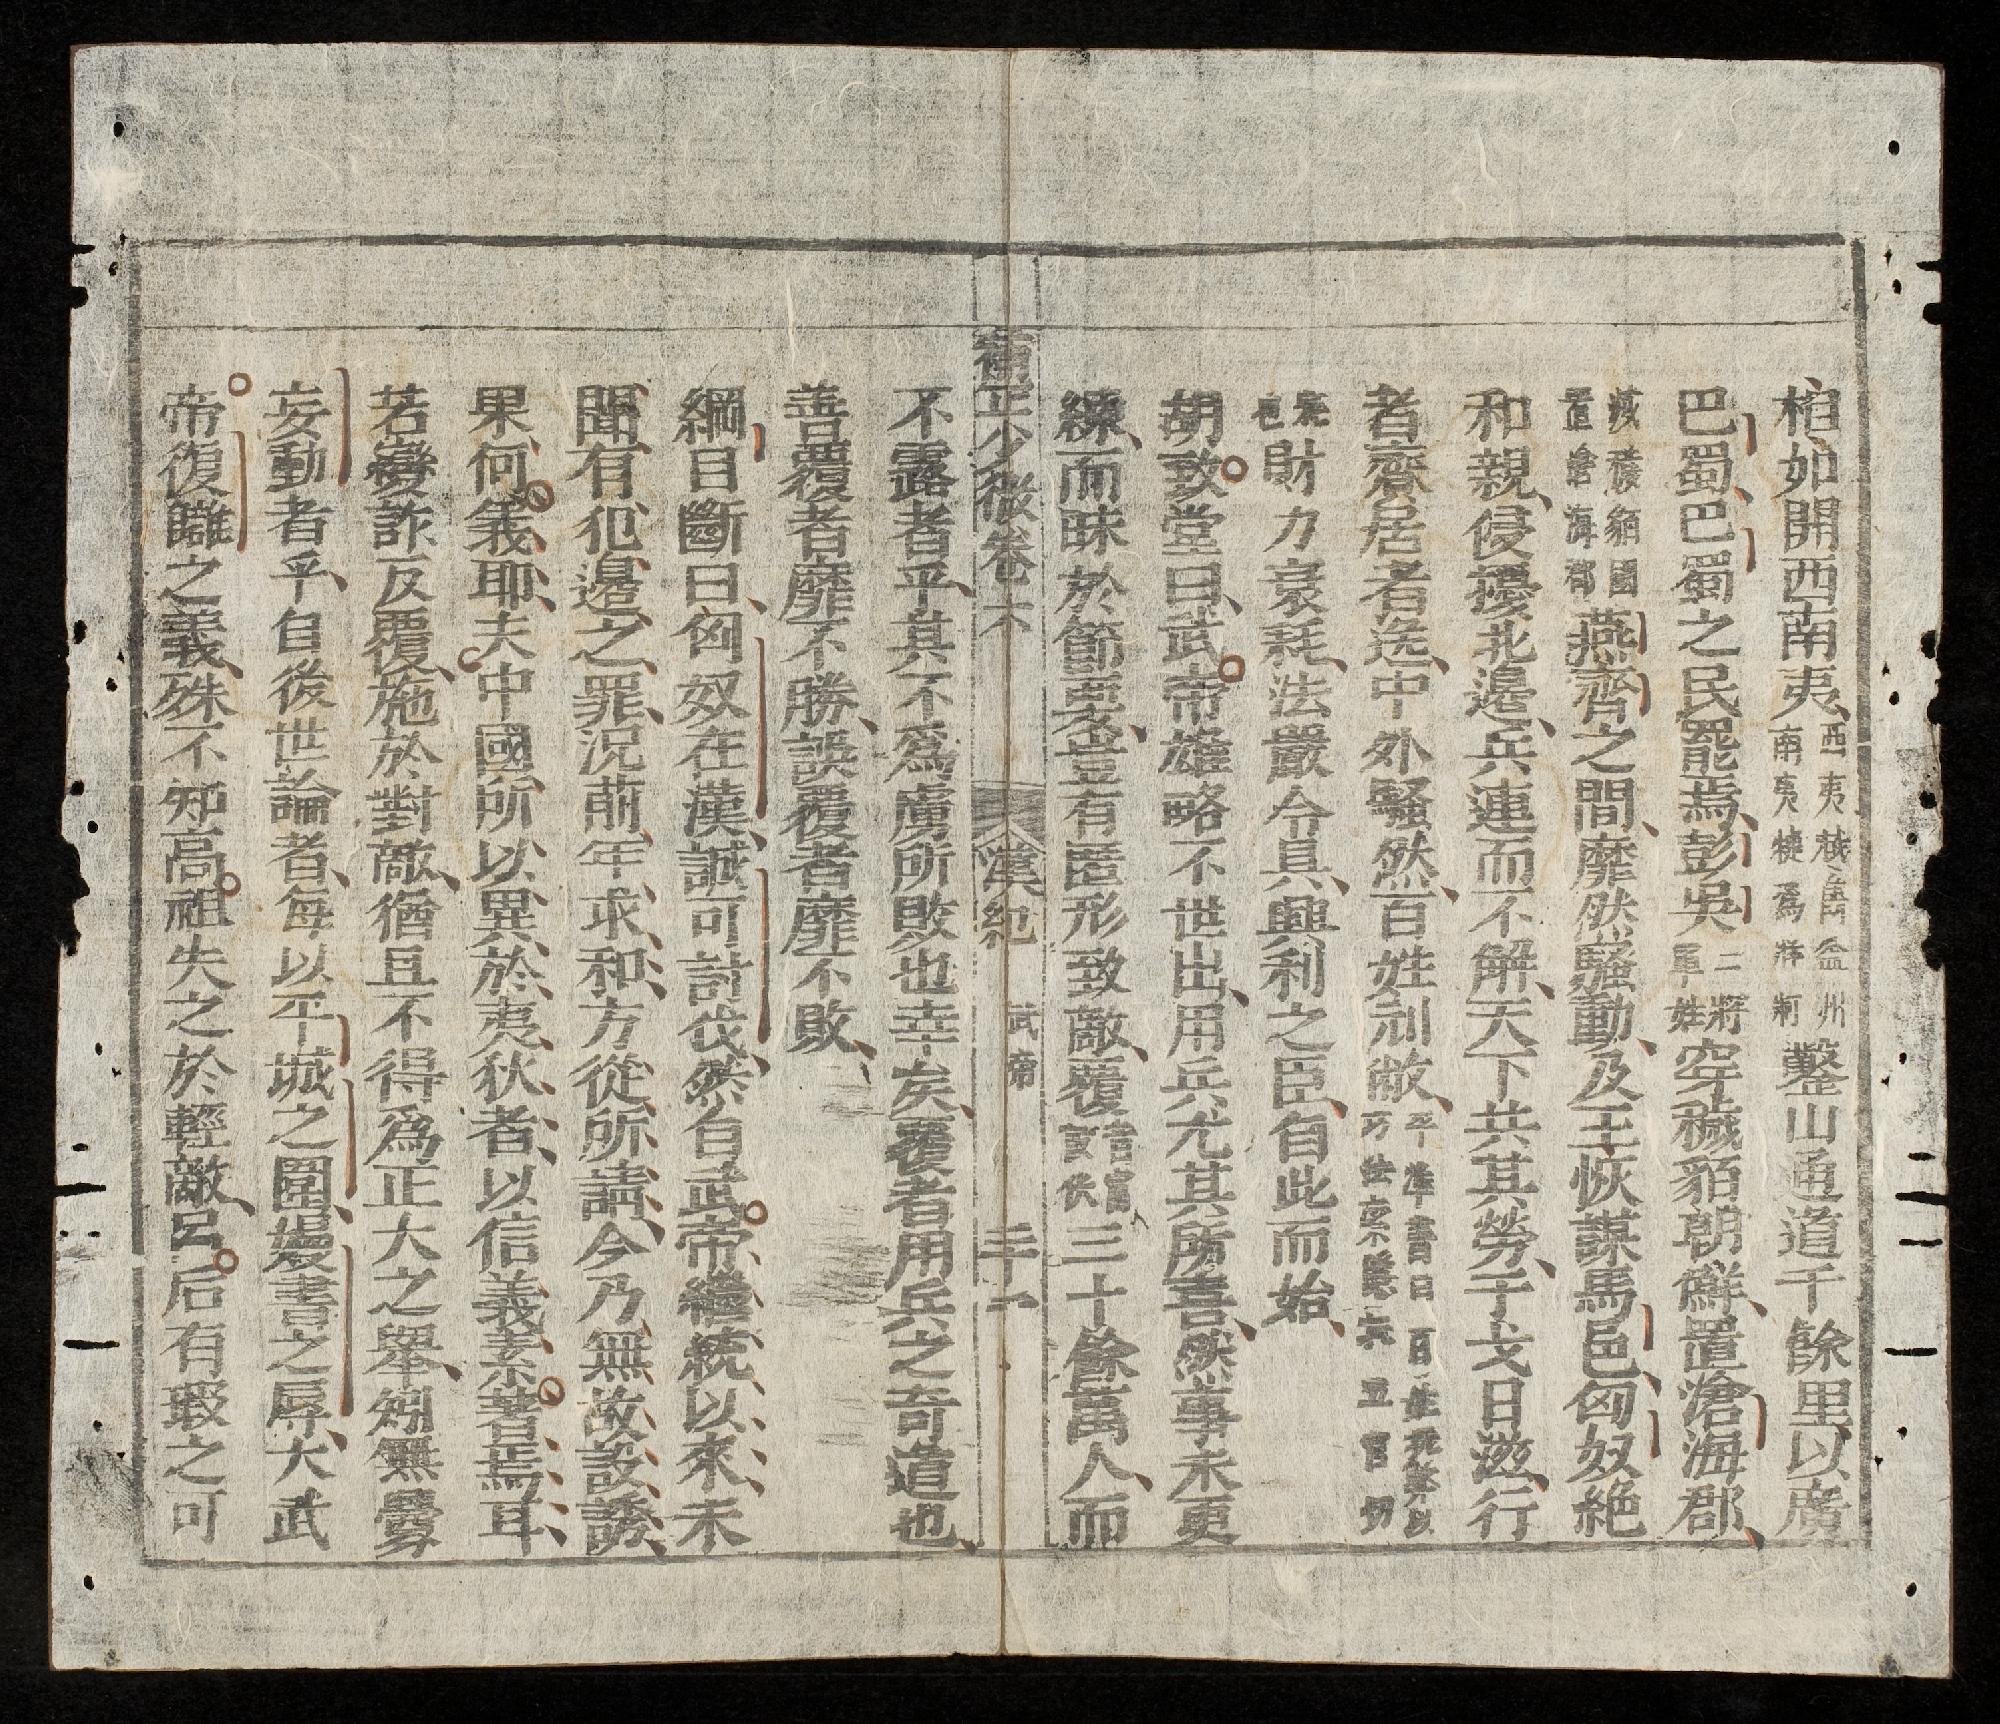 相如開西南夷西夷越巂益州南夷犍爲牂牁鑿山通道千餘里以廣
巴蜀巴蜀之民罷焉彭吳二將軍姓穿穢貊朝鮮置滄海郡
滅穢貊國置滄海郡燕齊之間靡然騷動及王恢謀馬邑匈奴絶
和親侵擾北邊兵連而不解天下共其勞干戈日滋行
者齎居者送中外騷然百姓刓敝平準書曰百姓抏獘以巧法
財力衰耗法嚴令具興利之臣自此而始
胡致堂曰武帝雄略不世出用兵尤其所喜然事未更
練而昧於節要豈有匿形致敵覆三十餘萬人而
補正少微卷六 漢紀 武帝 二十一
不露者乎其不爲虜所敗也幸矣覆者用兵之奇道也
善覆者靡不勝誤覆者靡不敗
綱目斷曰匈奴在漢誠可討伐然自武帝繼統以來未
聞有犯邊之罪況前年求和方從所請今乃無故設誘
果何義耶夫中國所以異於夷狄者以信義素著焉耳
若變詐反覆施於對敵猶且不得爲正大之舉矧無釁
妄動者乎自後世論者每以平城之圍嫚書之辱大武
帝復讎之義殊不知高祖失之於輕敵呂后有瑕之可